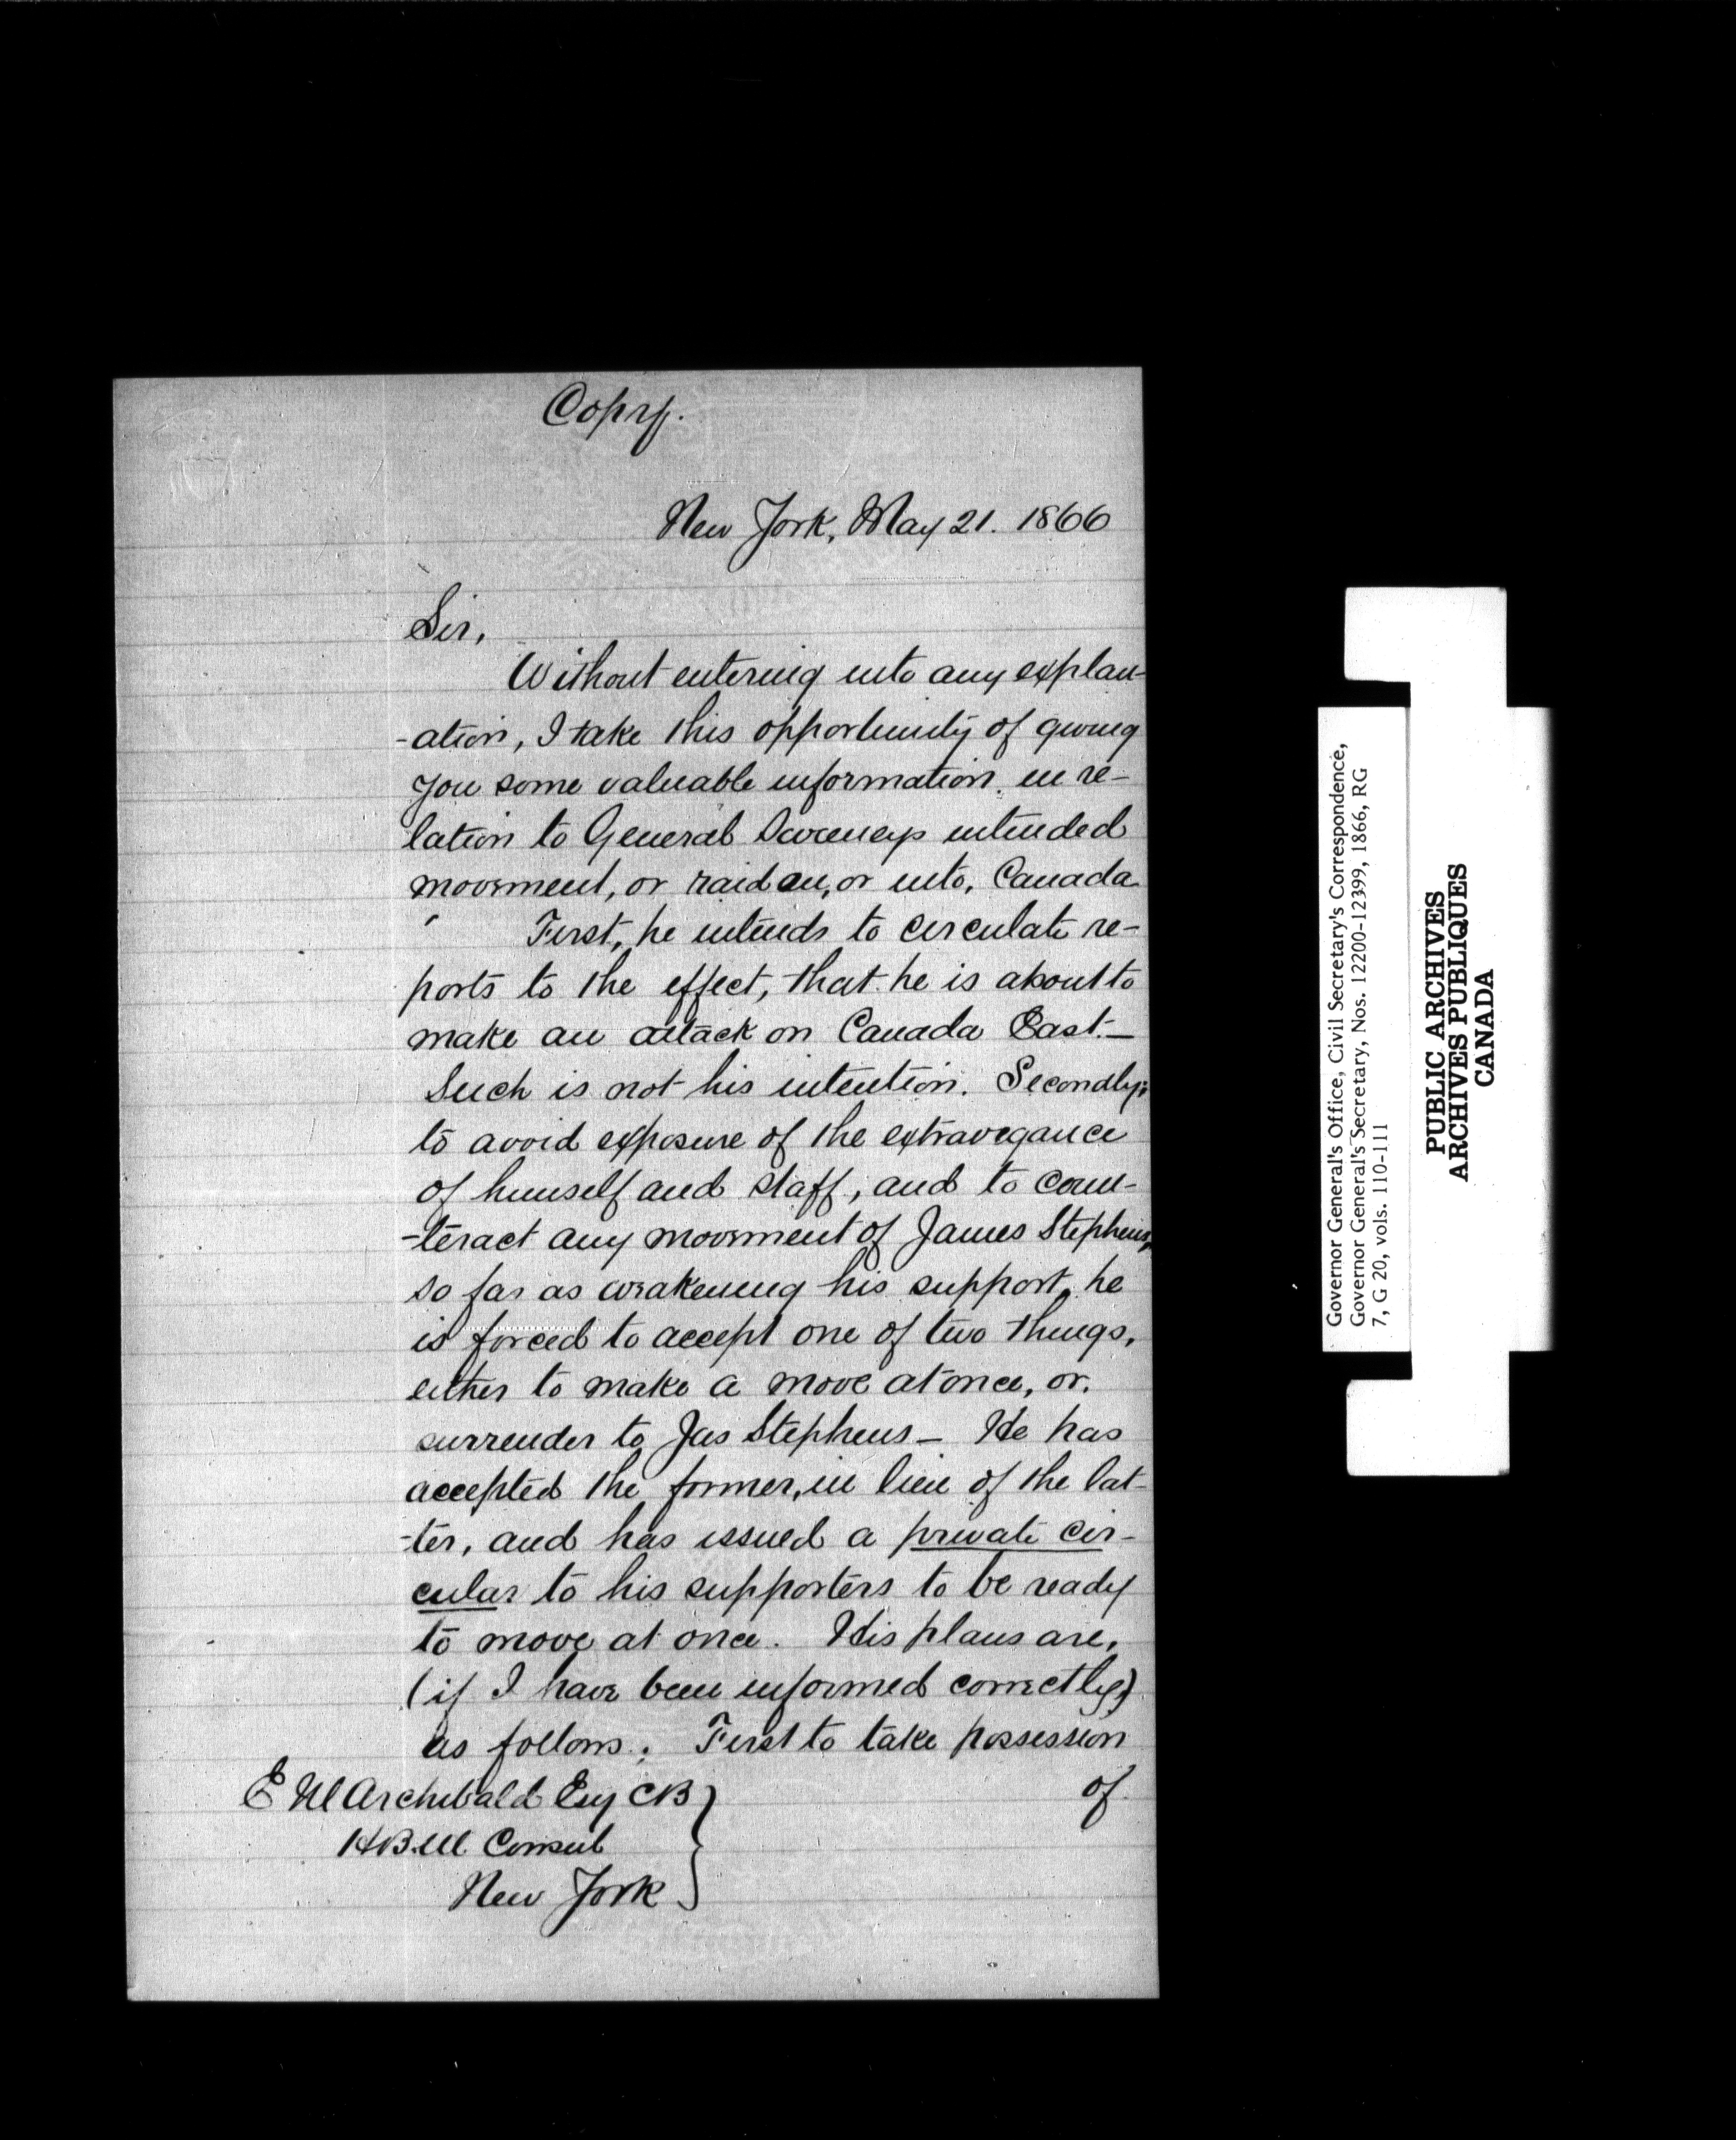 Copy.
New York, May 21. 1866
Sir,
Without entering into any explan-
-ation, I take this opportunity of giving
you some valuable information in re-
lation to General Sweeneys intended
movement, or raid on, or into, Canada
First, he intends to circulate re-
ports to the effect, that he is about to
make an attack on Canada East.—
Such is not his intention. Secondly;
to avoid exposure of the extravagance
of himself and staff, and to coun-
-teract any movement of James Stephens,
so far as weakening his support, he
is forced to accept one of two things,
either to make a move at once, or,
surrender to Jas Stephens — He has
accepted the former, in lieu of the lat-
-ter, and has issued a private cir-
cular to his supporters to be ready
to move at once. His plans are,
(if I have been informed correctly)
as follows. First to take possession
of
E M Archibald Esq CB
H.B.M Consul
New York
Governor General's Office, Civil Secretary's Correspondence,
Governor General's Secretary, Nos. 12200-12399, 1866, RG
7, G 20, vols. 110-111
PUBLIC ARCHIVES
ARCHIVES PUBLIQUES
CANADA